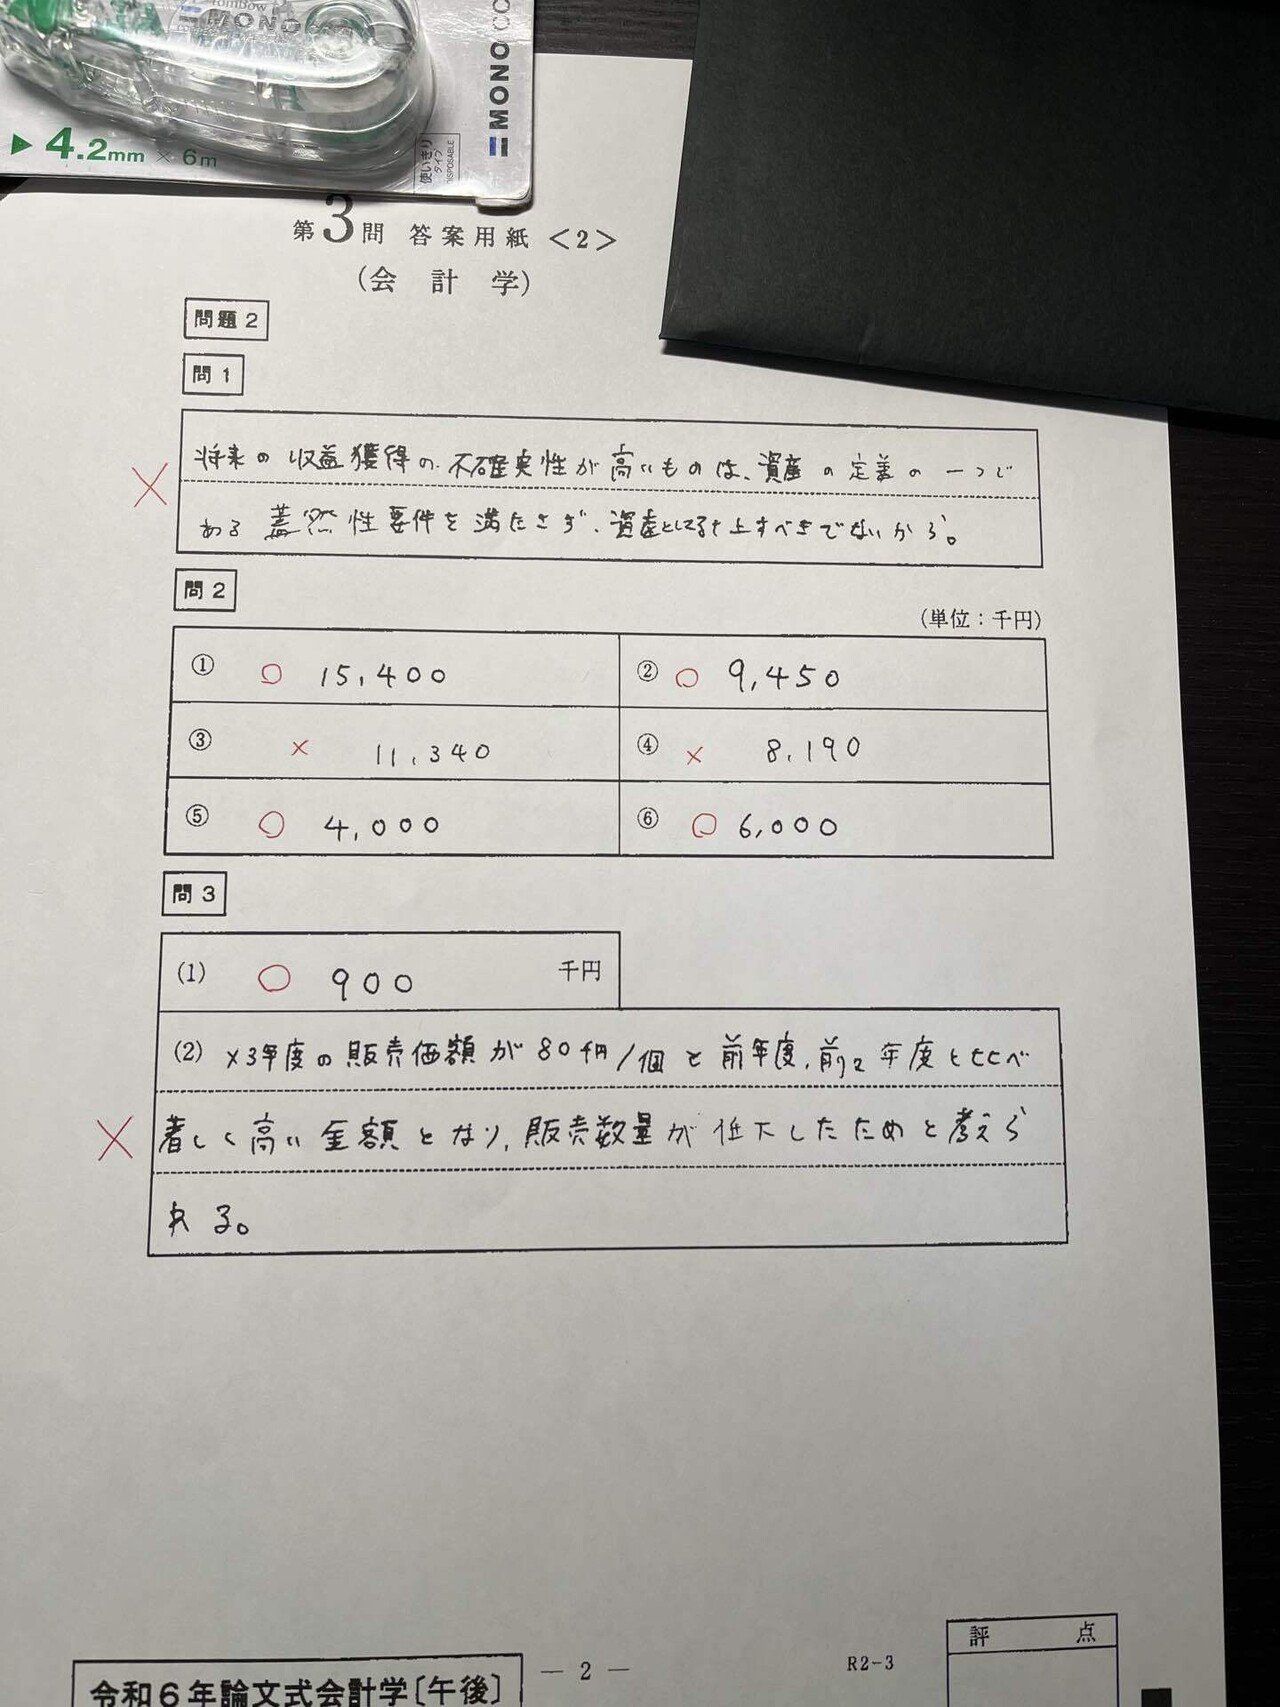 Tombow
MONO
MONO CO
4.2mm × 6m
使いきり
タイプ
DISPOSABLE
第3問 答案用紙 <2>
(会計学)
問題2
問1
将来の収益獲得の不確実性が高いものは、資産の定義の一つで
ある蓋然性要件を満たさず、資産として計上すべきでないから。
問2
(単位:千円)
① ○ 15,400 ② ○ 9,450
③ × 11,340 ④ × 8,190
⑤ ○ 4,000 ⑥ ○ 6,000
問3
(1) ○ 900 千円
(2) ×3年度の販売価額が80千円/個と前年度,前々年度と比べ
著しく高い金額となり,販売数量が低下したためと考えら
れる。
評点
— 2 —
R2-3
令和6年論文式会計学〔午後〕